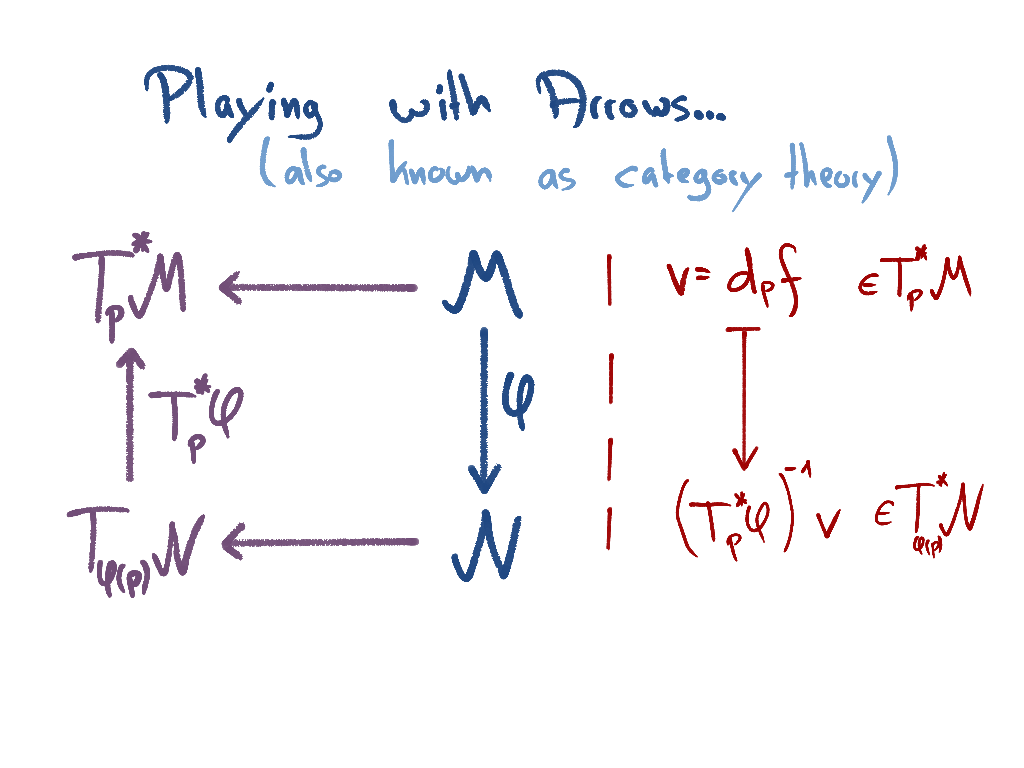 Playing with Arrows...
(also known as category theory)
T*ₚM ← M | v = dₚf ∈ T*ₚM
T*ₚφ φ
T_φ(p)N ← N | (T*ₚφ)⁻¹ v ∈ T*_φ(p)N